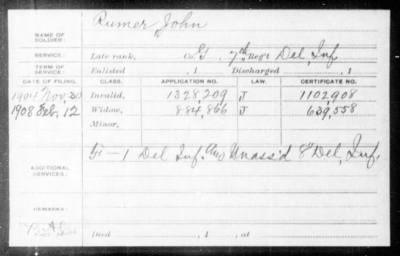 Rumer John
NAME OF SOLDIER:
SERVICE: Late rank, Co. G, 7th Reg't Del. Inf.
TERM OF SERVICE: Enlisted , 1 Discharged , 1
DATE OF FILING. CLASS. APPLICATION NO. LAW. CERTIFICATE NO.
1904 Nov, 30 Invalid, 1328,209 J 1102,908
1908 Feb, 12 Widow, 884,866 J 639,558
Minor,
ADDITIONAL SERVICES: 1 Del Inf. Unass'd 8" Del, Inf.
REMARKS:
Died , 1 , at